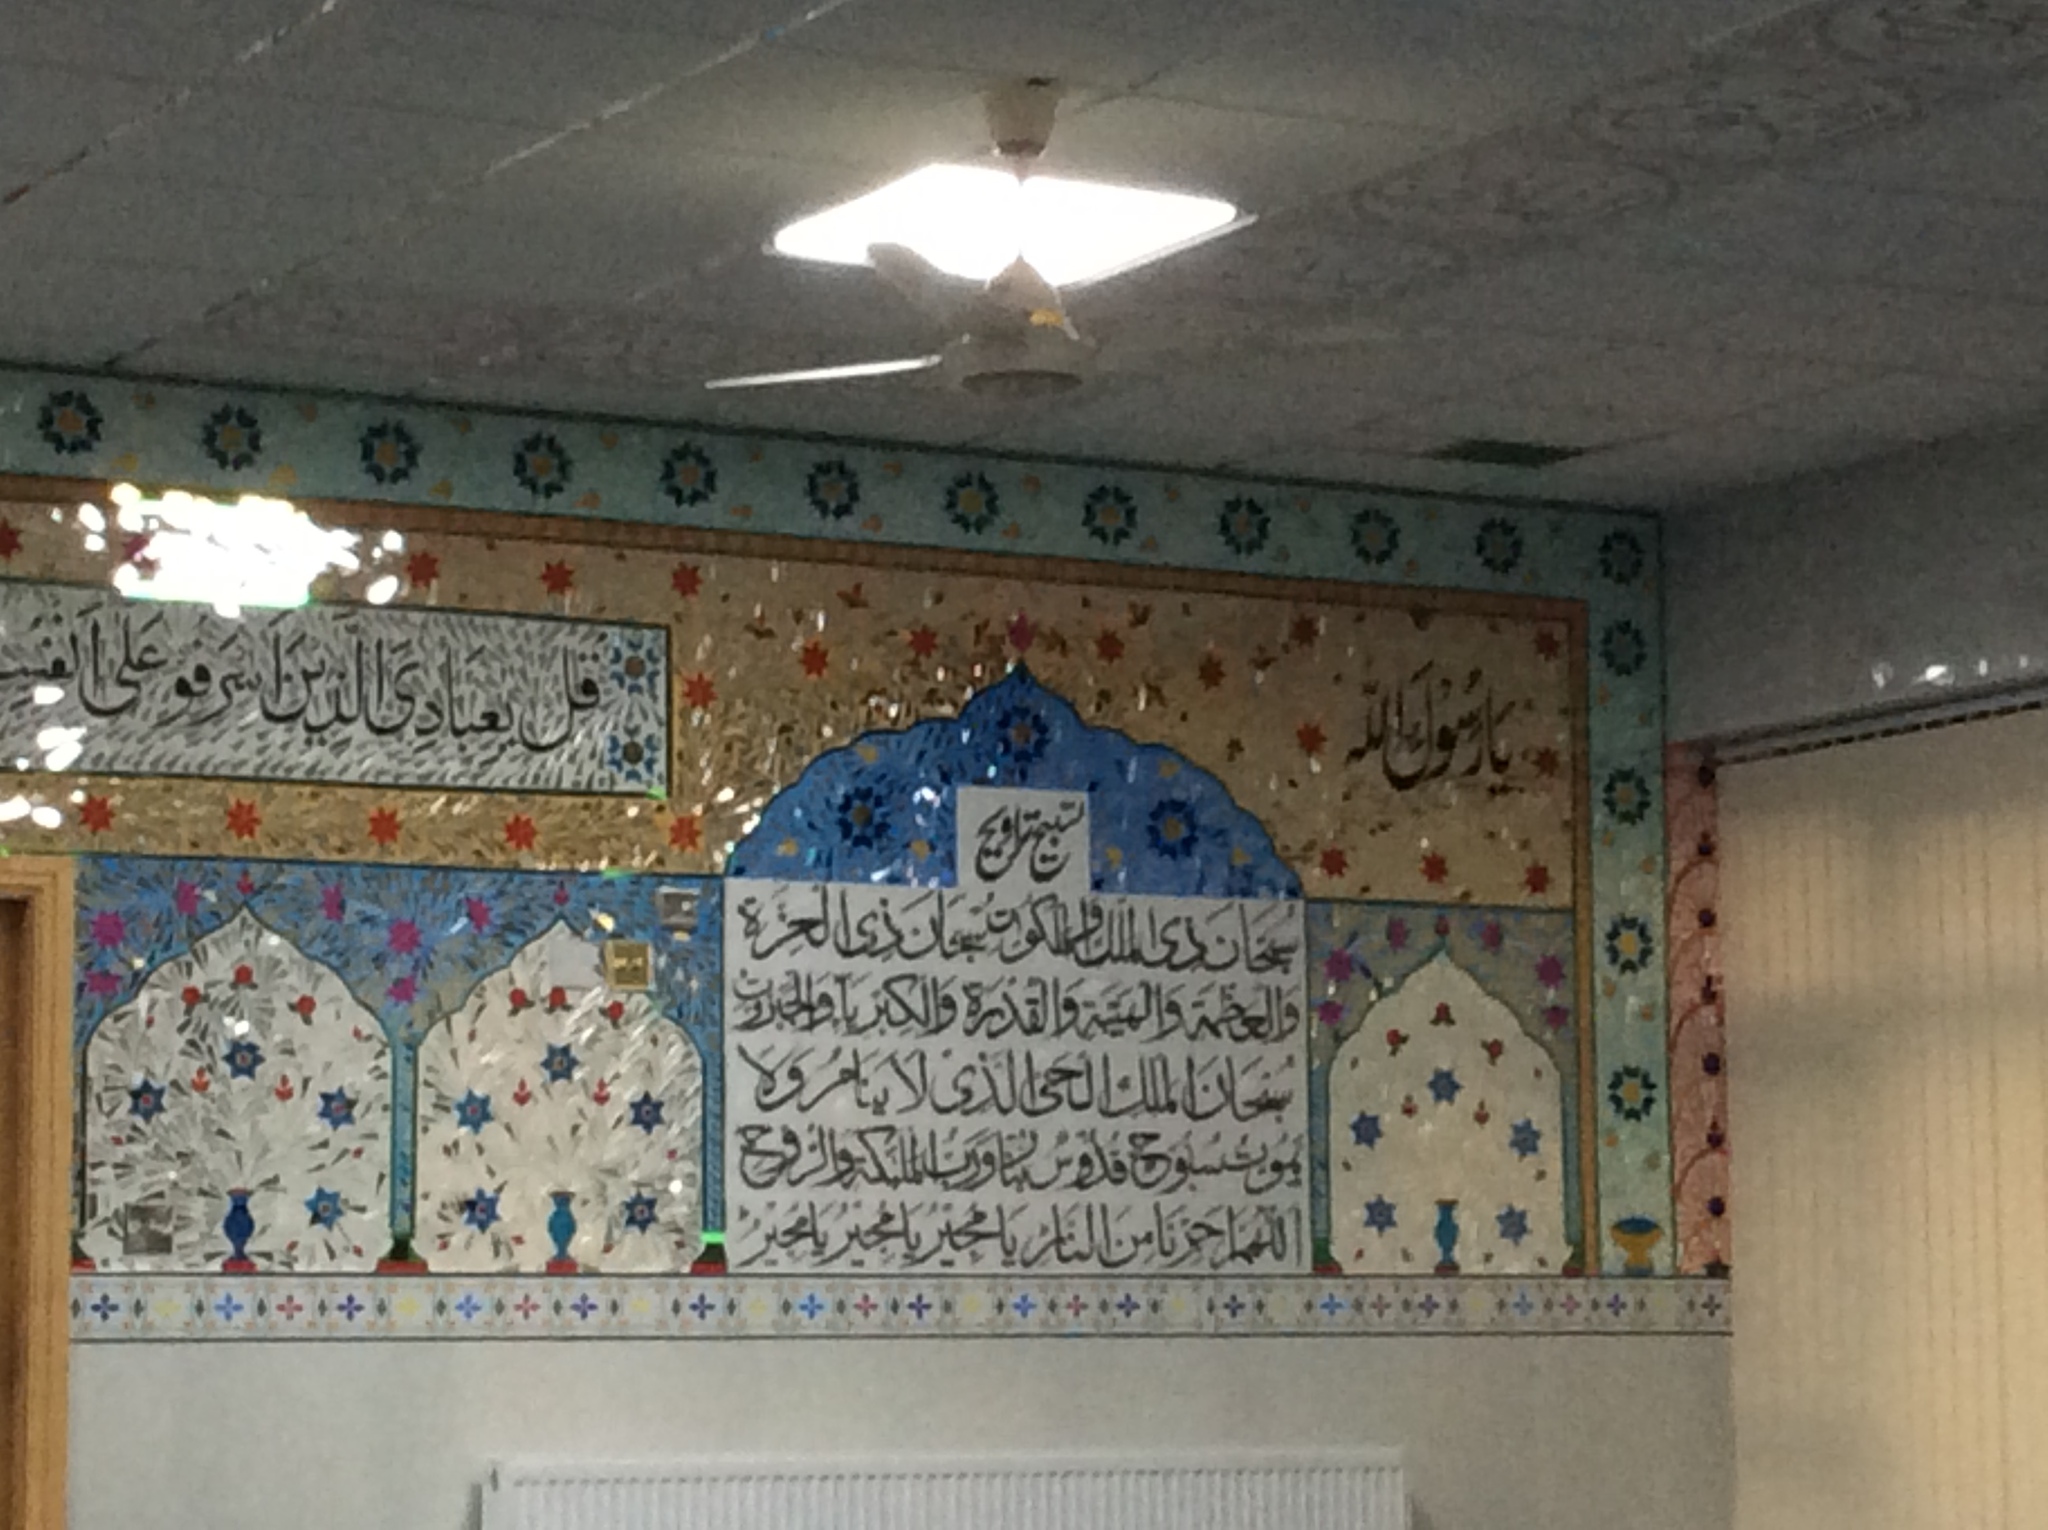 قل يعبادى الذين اسرفو على انفسـ
يَارَسُوْلَ اللّٰه
تسبیح تراویح
سُبْحَانَ ذِی الْمُلْكِ وَالْمَلَكُوْتِ سُبْحَانَ ذِی الْعِزَّةِ
وَالْعَظْمَةِ وَالْهَيْبَةِ وَالْقُدْرَةِ وَالْكِبْرِيَآءِ وَالْجَبَرُوْتِ
سُبْحَانَ الْمَلِكِ الْحَیِّ الَّذِیْ لَا يَنَامُ وَلَا
يَمُوْتُ سُبُّوْحٌ قُدُّوْسٌ رَبُّنَا وَرَبُّ الْمَلٰٓئِكَةِ وَالرُّوْحِ
اَللّٰهُمَّ اَجِرْنَا مِنَ النَّارِ يَا مُجِيْرُ يَا مُجِيْرُ يَا مُجِيْرُ يَا مُجِيْرُ